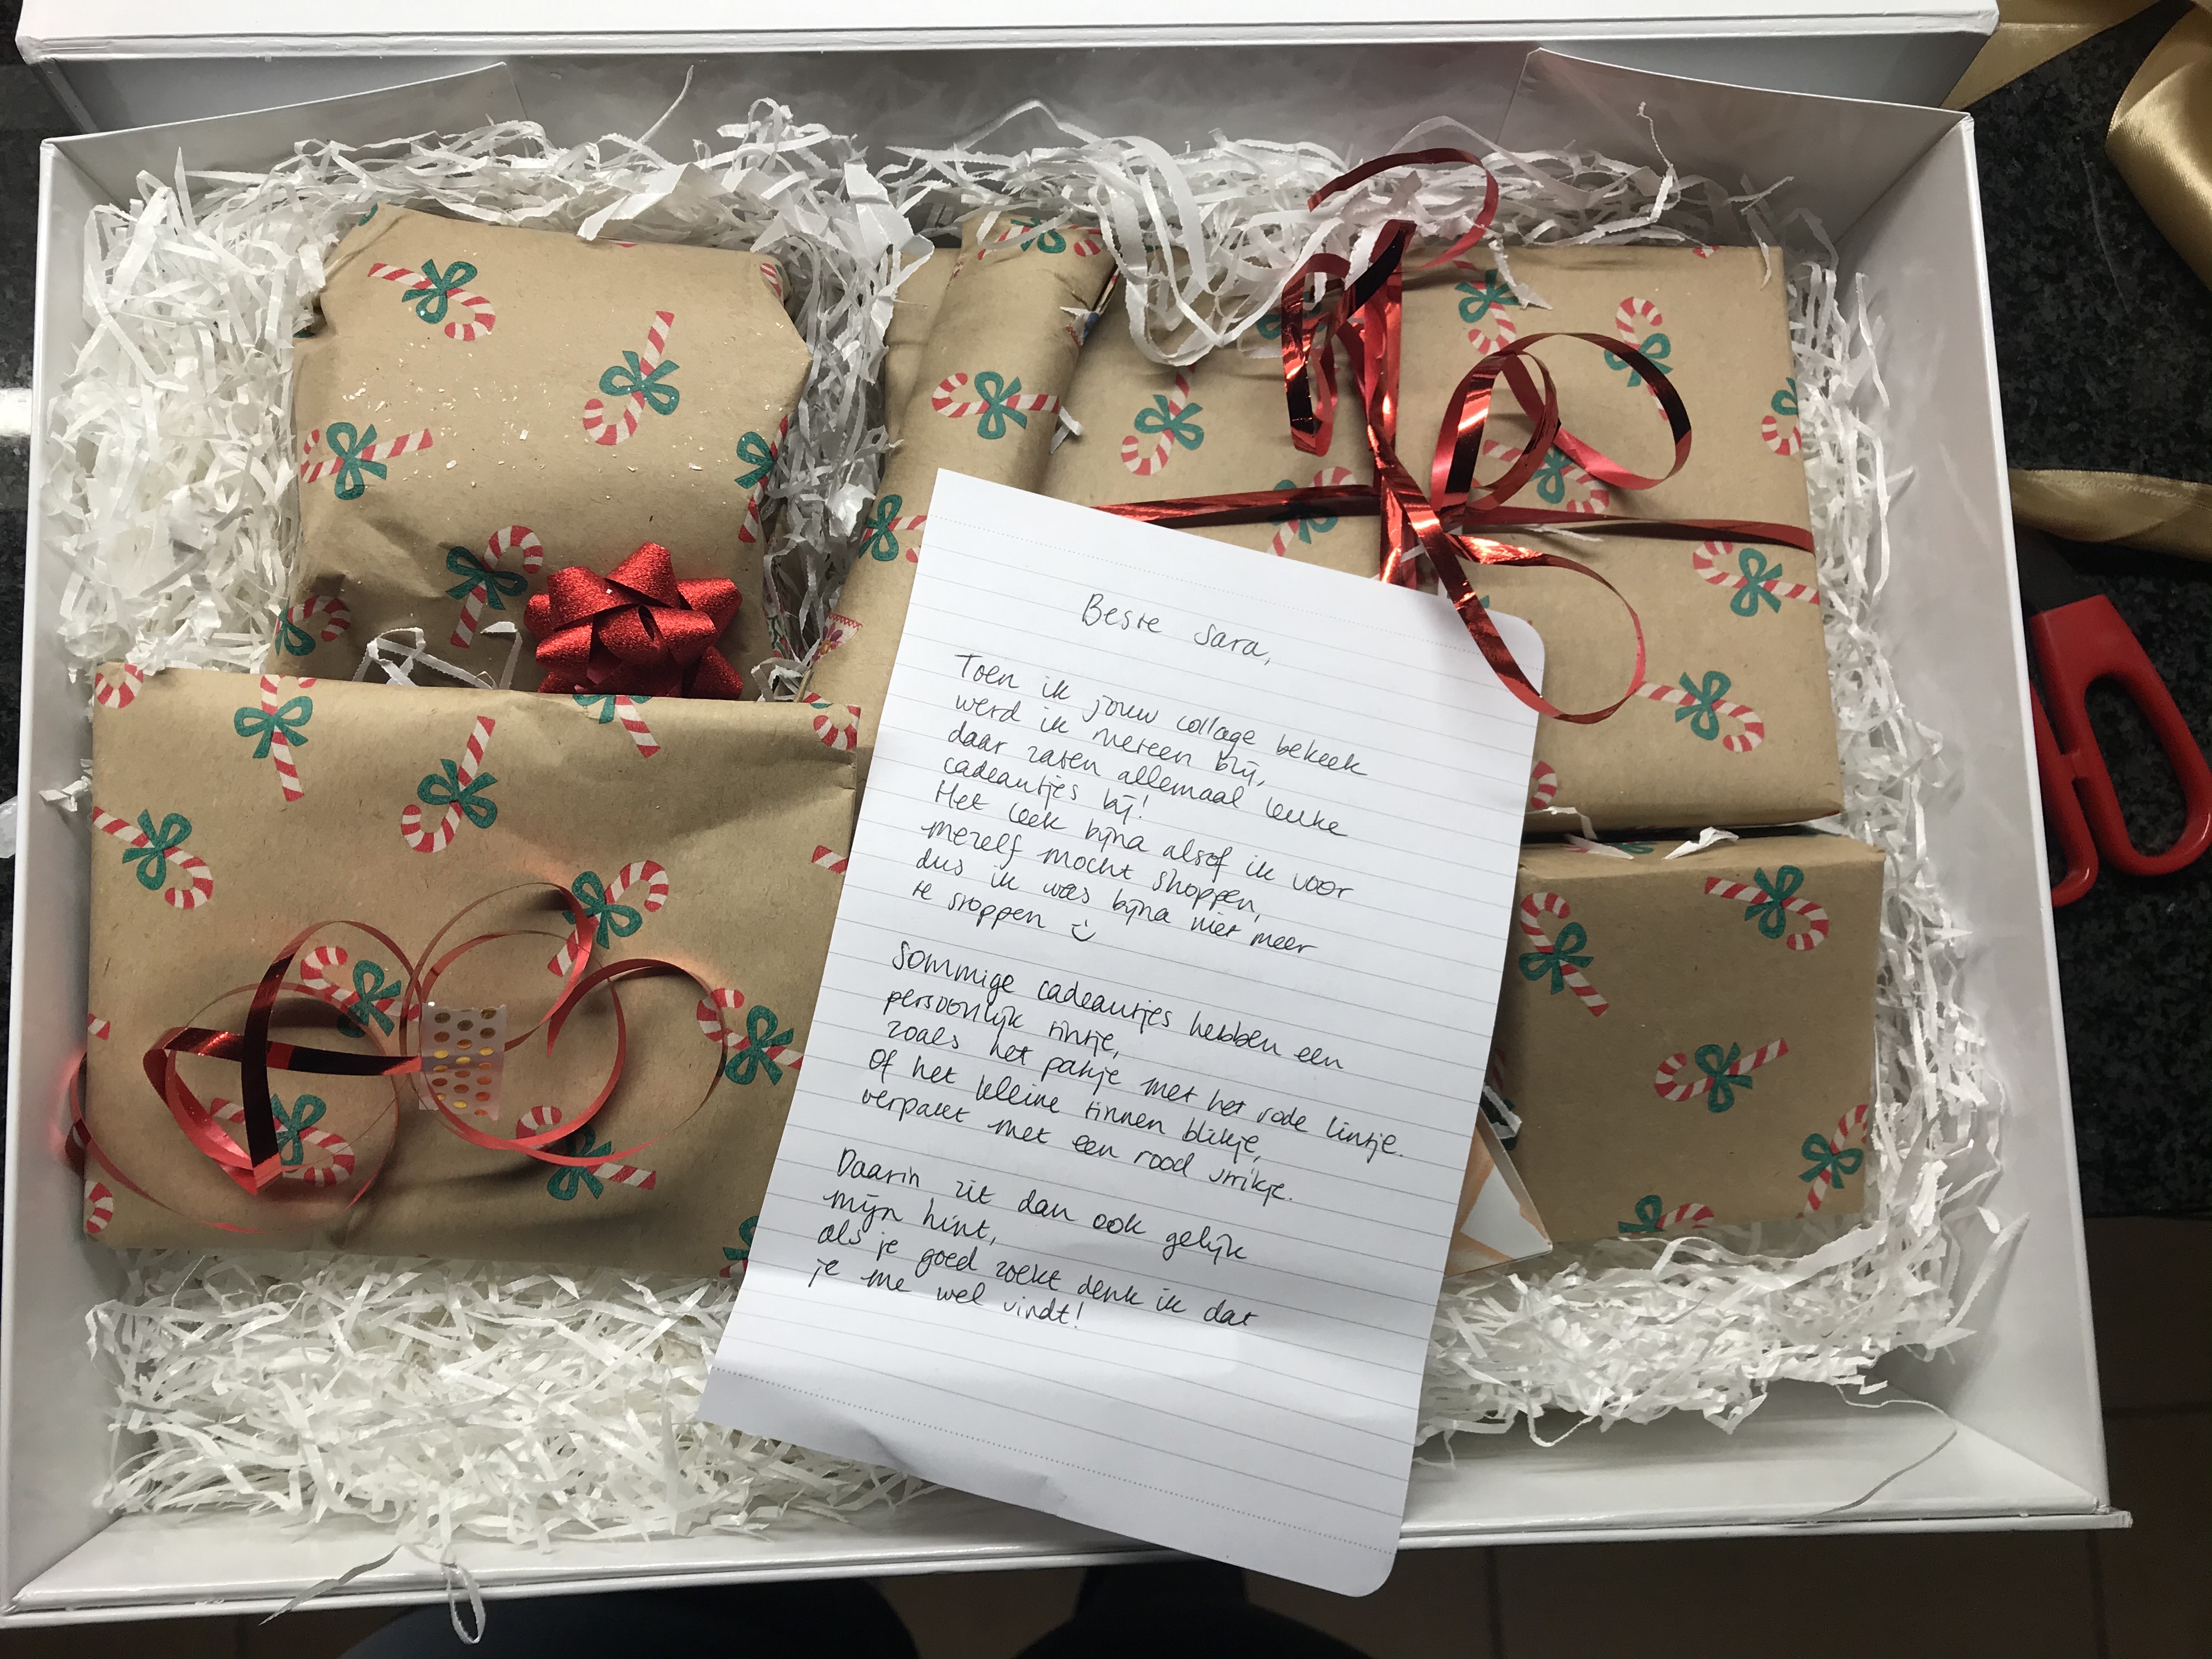 Beste Sara,
Toen ik jouw collage bekeek
werd ik meteen blij,
daar zaten allemaal leuke
cadeautjes bij!
Het leek bijna alsof ik voor
mezelf mocht shoppen,
dus ik was bijna niet meer
te stoppen
Sommige cadeautjes hebben een
persoonlijk tintje,
zoals het pakje met het rode lintje.
Of het kleine tinnen blikje,
verpakt met een rood strikje.
Daarin zit dan ook gelijk
mijn hint,
als je goed zoekt denk ik dat
je me wel vindt!